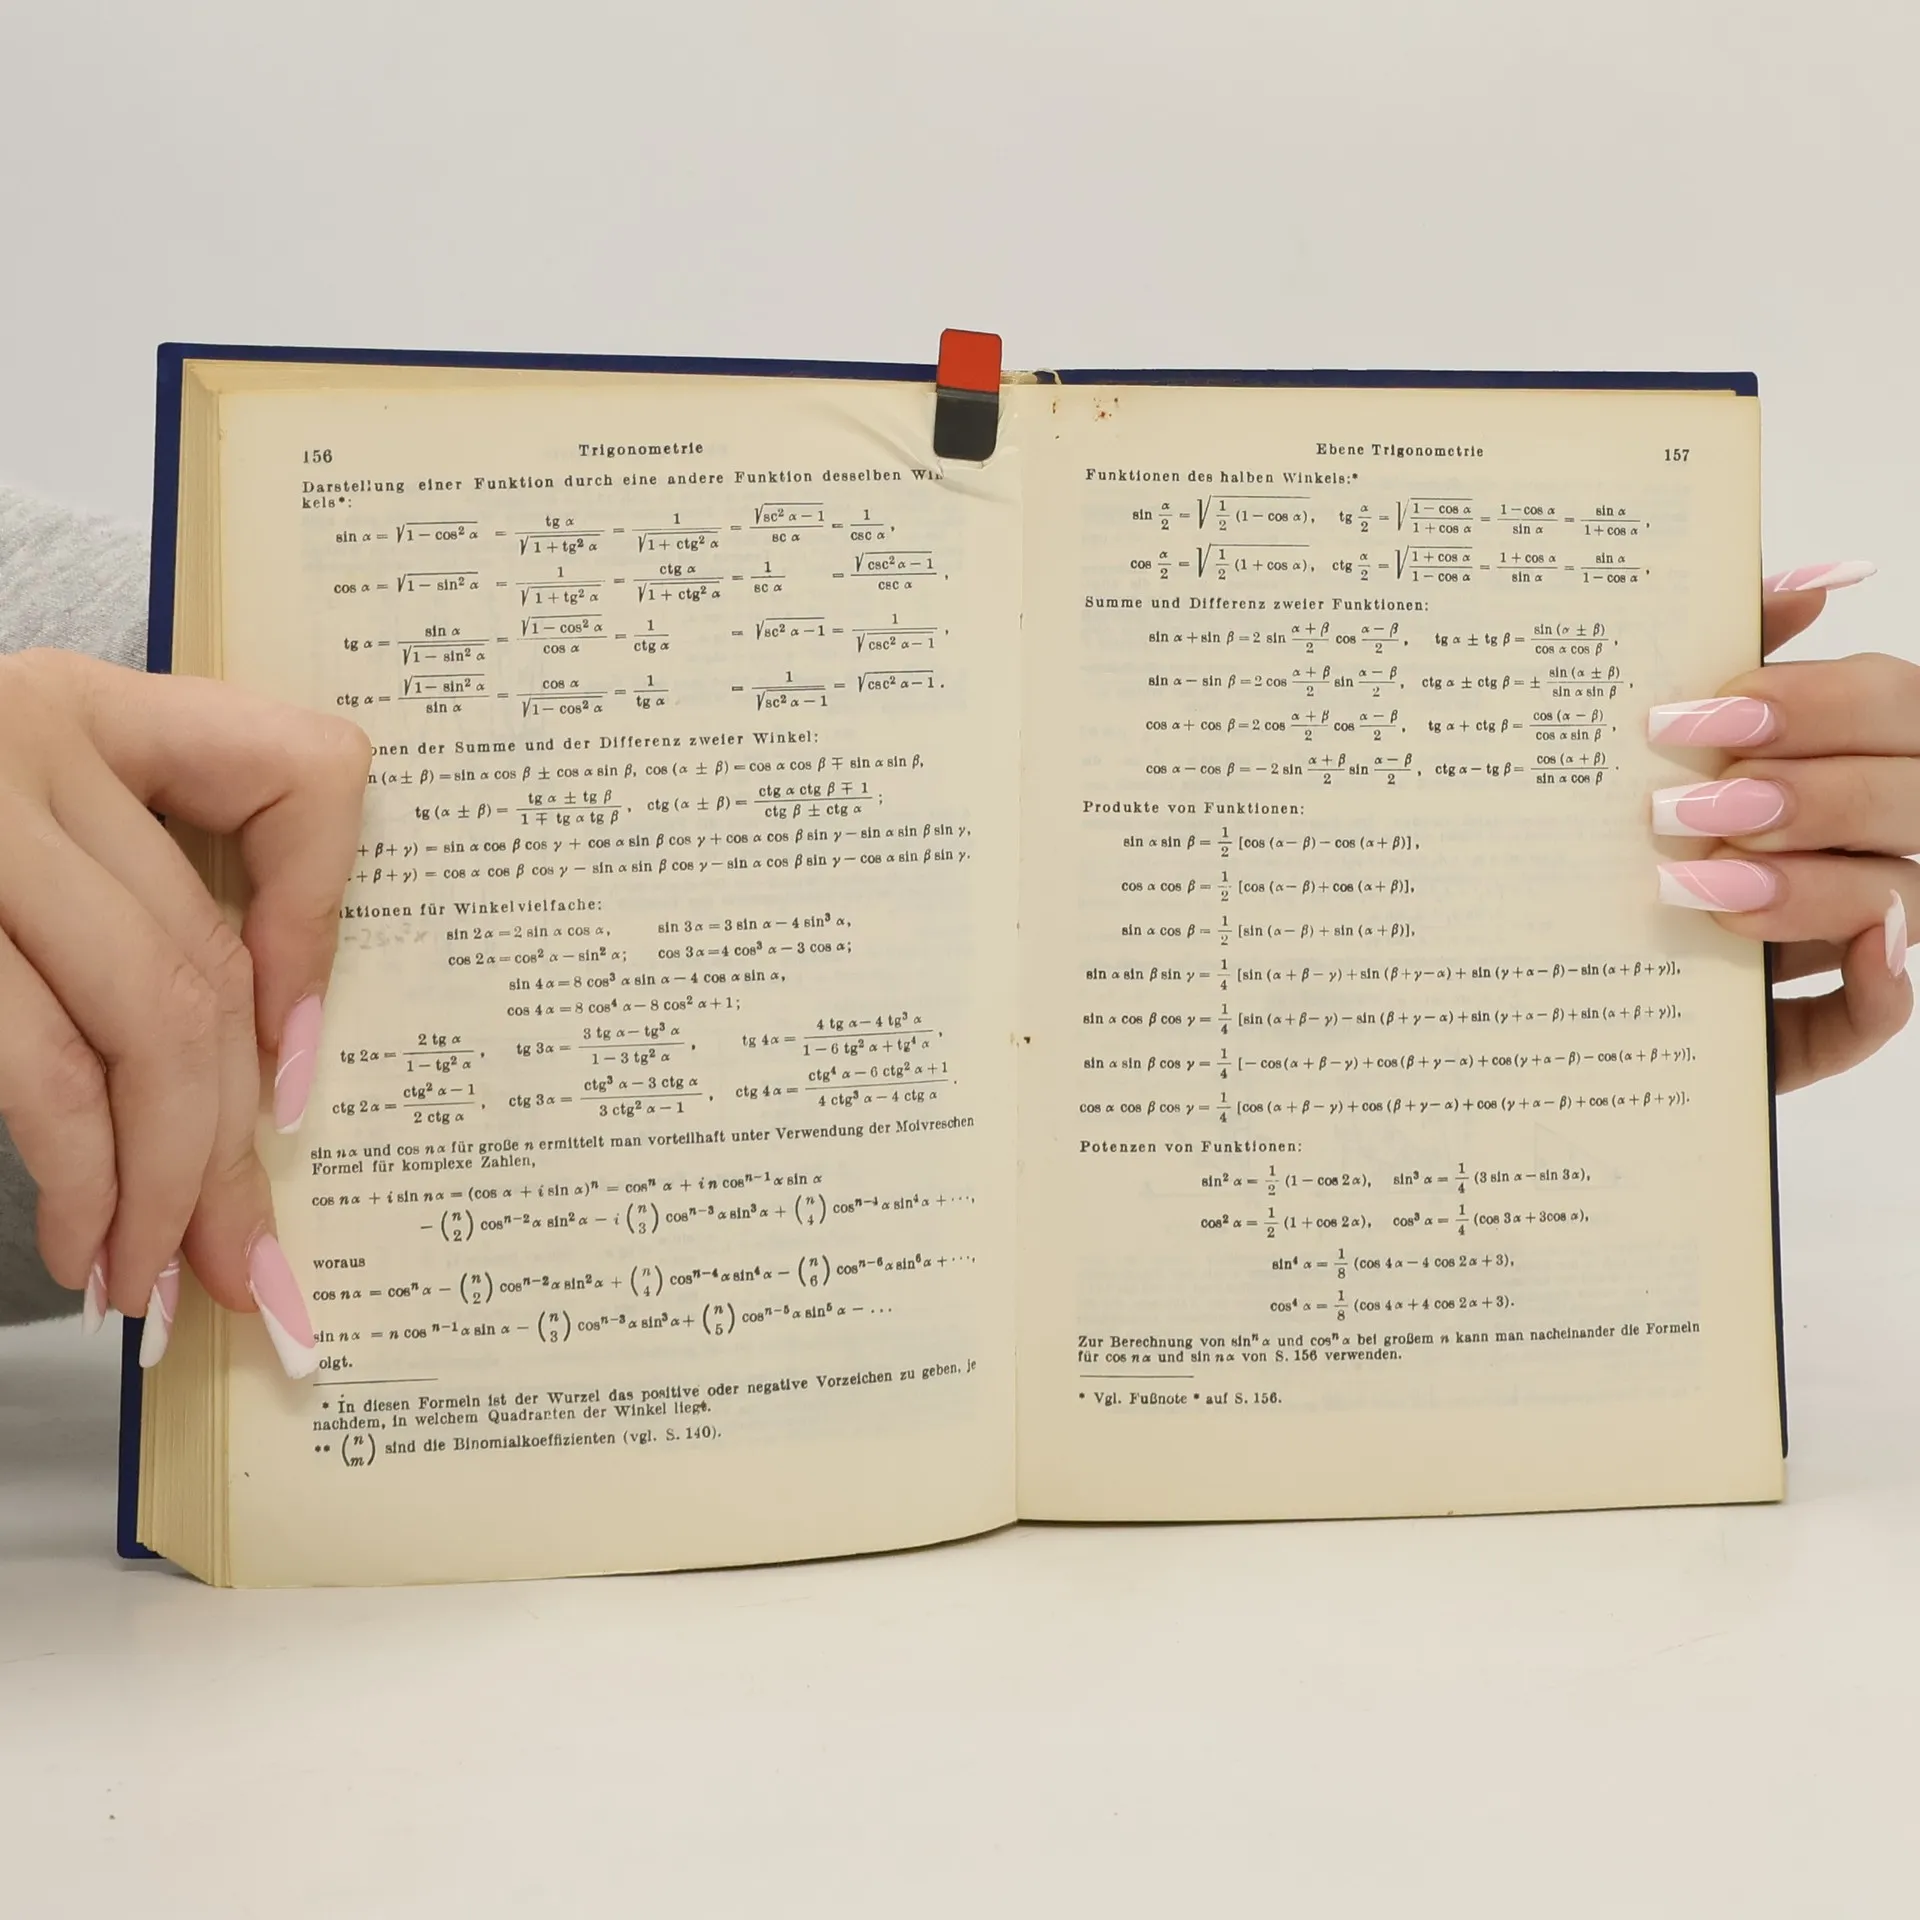 156
Trigonometrie
Darstellung einer Funktion durch eine andere Funktion desselben
kels*:
sin α = √(1 − cos² α) = tg α / √(1 + tg² α) = 1 / √(1 + ctg² α) = √(sc² α − 1) / sc α = 1 / csc α ,
cos α = √(1 − sin² α) = 1 / √(1 + tg² α) = ctg α / √(1 + ctg² α) = 1 / sc α = √(csc² α − 1) / csc α ,
tg α = sin α / √(1 − sin² α) = √(1 − cos² α) / cos α = 1 / ctg α = √(sc² α − 1) = 1 / √(csc² α − 1) ,
ctg α = √(1 − sin² α) / sin α = cos α / √(1 − cos² α) = 1 / tg α = 1 / √(sc² α − 1) = √(csc² α − 1) .
onen der Summe und der Differenz zweier Winkel:
n (α ± β) = sin α cos β ± cos α sin β, cos (α ± β) = cos α cos β ∓ sin α sin β,
tg (α ± β) = (tg α ± tg β) / (1 ∓ tg α tg β) , ctg (α ± β) = (ctg α ctg β ∓ 1) / (ctg β ± ctg α) ;
+ β + γ) = sin α cos β cos γ + cos α sin β cos γ + cos α cos β sin γ − sin α sin β sin γ,
+ β + γ) = cos α cos β cos γ − sin α sin β cos γ − sin α cos β sin γ − cos α sin β sin γ.
ktionen für Winkelvielfache:
sin 2α = 2 sin α cos α, sin 3α = 3 sin α − 4 sin³ α,
cos 2α = cos² α − sin² α; cos 3α = 4 cos³ α − 3 cos α;
sin 4α = 8 cos³ α sin α − 4 cos α sin α,
cos 4α = 8 cos⁴ α − 8 cos² α + 1;
tg 2α = 2 tg α / (1 − tg² α) , tg 3α = (3 tg α − tg³ α) / (1 − 3 tg² α) , tg 4α = (4 tg α − 4 tg³ α) / (1 − 6 tg² α + tg⁴ α) ,
ctg 2α = (ctg² α − 1) / (2 ctg α) , ctg 3α = (ctg³ α − 3 ctg α) / (3 ctg² α − 1) , ctg 4α = (ctg⁴ α − 6 ctg² α + 1) / (4 ctg³ α − 4 ctg α) .
sin nα und cos nα für große n ermittelt man vorteilhaft unter Verwendung der Moivreschen
Formel für komplexe Zahlen,
cos nα + i sin nα = (cos α + i sin α)ⁿ = cosⁿ α + i n cosⁿ⁻¹ α sin α
− (n 2) cosⁿ⁻² α sin² α − i (n 3) cosⁿ⁻³ α sin³ α + (n 4) cosⁿ⁻⁴ α sin⁴ α + ···,
woraus
cos nα = cosⁿ α − (n 2) cosⁿ⁻² α sin² α + (n 4) cosⁿ⁻⁴ α sin⁴ α − (n 6) cosⁿ⁻⁶ α sin⁶ α + ···,
sin nα = n cosⁿ⁻¹ α sin α − (n 3) cosⁿ⁻³ α sin³ α + (n 5) cosⁿ⁻⁵ α sin⁵ α − ...
olgt.
* In diesen Formeln ist der Wurzel das positive oder negative Vorzeichen zu geben, je
nachdem, in welchem Quadranten der Winkel liegt.
** (n m) sind die Binomialkoeffizienten (vgl. S. 140).
Ebene Trigonometrie
157
Funktionen des halben Winkels:*
sin α/2 = √(1/2 (1 − cos α)), tg α/2 = √((1 − cos α) / (1 + cos α)) = (1 − cos α) / sin α = sin α / (1 + cos α) ,
cos α/2 = √(1/2 (1 + cos α)), ctg α/2 = √((1 + cos α) / (1 − cos α)) = (1 + cos α) / sin α = sin α / (1 − cos α) ,
Summe und Differenz zweier Funktionen:
sin α + sin β = 2 sin (α + β)/2 cos (α − β)/2 , tg α ± tg β = sin (α ± β) / (cos α cos β) ,
sin α − sin β = 2 cos (α + β)/2 sin (α − β)/2 , ctg α ± ctg β = ± sin (α ± β) / (sin α sin β) ,
cos α + cos β = 2 cos (α + β)/2 cos (α − β)/2 , tg α + ctg β = cos (α − β) / (cos α sin β) ,
cos α − cos β = − 2 sin (α + β)/2 sin (α − β)/2 , ctg α − tg β = cos (α + β) / (sin α cos β) .
Produkte von Funktionen:
sin α sin β = 1/2 [cos (α − β) − cos (α + β)],
cos α cos β = 1/2 [cos (α − β) + cos (α + β)],
sin α cos β = 1/2 [sin (α − β) + sin (α + β)],
sin α sin β sin γ = 1/4 [sin (α + β − γ) + sin (β + γ − α) + sin (γ + α − β) − sin (α + β + γ)],
sin α cos β cos γ = 1/4 [sin (α + β − γ) − sin (β + γ − α) + sin (γ + α − β) + sin (α + β + γ)],
sin α sin β cos γ = 1/4 [− cos (α + β − γ) + cos (β + γ − α) + cos (γ + α − β) − cos (α + β + γ)],
cos α cos β cos γ = 1/4 [cos (α + β − γ) + cos (β + γ − α) + cos (γ + α − β) + cos (α + β + γ)].
Potenzen von Funktionen:
sin² α = 1/2 (1 − cos 2α), sin³ α = 1/4 (3 sin α − sin 3α),
cos² α = 1/2 (1 + cos 2α), cos³ α = 1/4 (cos 3α + 3cos α),
sin⁴ α = 1/8 (cos 4α − 4 cos 2α + 3),
cos⁴ α = 1/8 (cos 4α + 4 cos 2α + 3).
Zur Berechnung von sinⁿ α und cosⁿ α bei großem n kann man nacheinander die Formeln
für cos nα und sin nα von S. 156 verwenden.
* Vgl. Fußnote * auf S. 156.